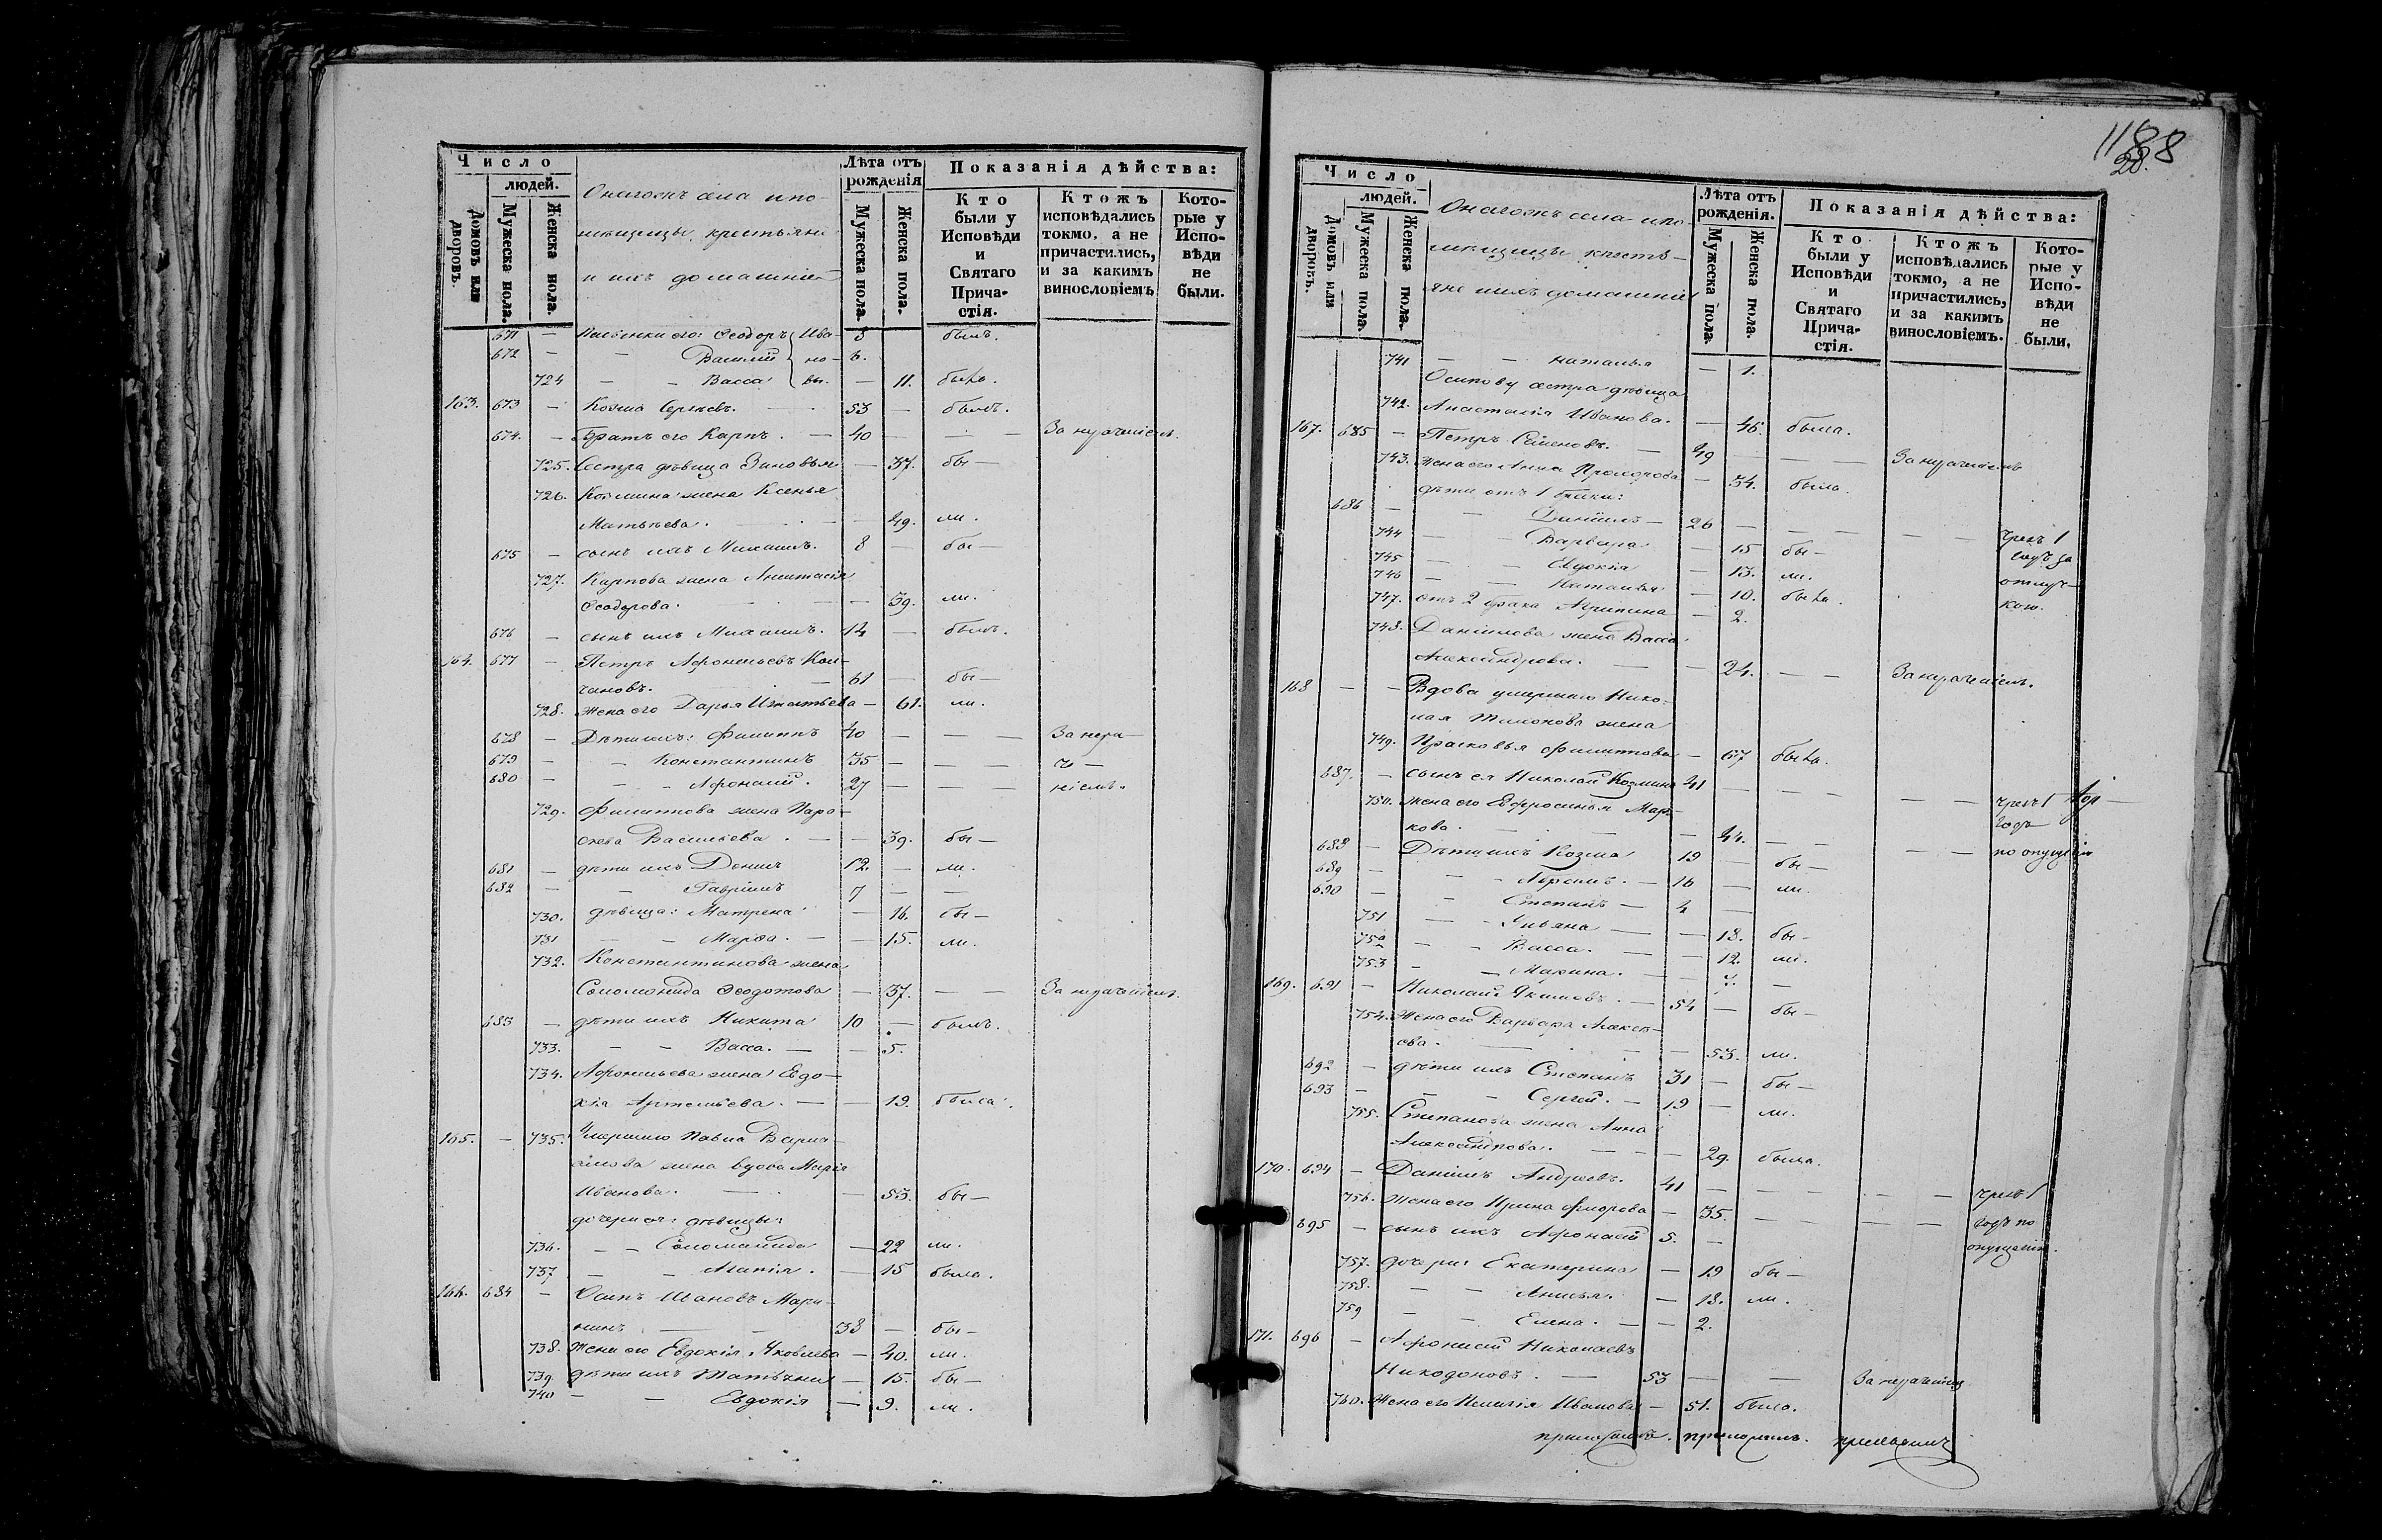 Число
людей.
Домовъ или дворовъ.
Мужеска пола.
Женска пола.
Онагожъ села и по-
мѣщицы крестьяне
и ихъ домашніе
Лѣта отъ рожденія
Мужеска пола.
Женска пола.
Показанія дѣйства:
Кто были у Исповѣди и Святаго Причастія.
Ктожъ исповѣдались токмо, а не причастились, и за какимъ винословіемъ
Которые у Исповѣди не были.
671 — Ѳеодоръ Ива- 8 былъ.
672 — — Василій но- 6.
724 — — Васса вы. — 11. была.
163. 673 — Козма Сергѣевъ. 53 — былъ.
674. — Братъ его Карпъ. — 40 — — — За нерачіемъ.
725. Сестра дѣвица Зиновья — 37. бы —
726. Козмина жена Ксенья
Матвѣева. — 49. ли.
675 — сынъ ихъ Михаилъ. 8 — бы —
727. Карпова жена Анастасія
Ѳеодорова. — 39. ли.
676 — сынъ ихъ Михаилъ. 14 — былъ.
164. 677 — Петръ Афонасьевъ Кол-
чановъ. — 61 — бы —
728. Жена его Дарья Игнатьева — 61. ли.
678 — Дѣти ихъ: Филиппъ 40 — — — За нера —
679 — — Константинъ 35 — — — че —
680 — — Афонасій. 27 — — — ніемъ.
729. Филиппова жена Пара-
скева Васильева. — — 39. бы —
681 — дѣти ихъ Денисъ 12. — ли.
682 — — Гаврилъ 7 — —
730. дѣвица: Матрена — 16. бы —
731 — — Марфа. — — 15. ли.
732. Константинова жена
Соломонида Ѳеодотова — 37. — — За нерачіемъ.
683 — дѣти ихъ Никита 10 — былъ.
733. — — Васса. — — 5.
734. Афонасьева жена Евдо-
кія Артемьева. — — 19. была.
165. — 735. Умершаго Павла Варла-
амова жена вдова Марія
Иванова. — — 53. бы —
дочери ея: дѣвицы:
736. — — Соломонида — 22 ли.
737 — — Агапія. — 15 была.
166. 684 — Осипъ Ивановъ Мари-
нинъ — — 38 — бы —
738. Жена его Евдокія Яковлева — 40. ли.
739. дѣти ихъ Татьяна — 15. бы —
740 — — Евдокія — 9. ли.
1188
20.
Число
людей.
Домовъ или дворовъ.
Мужеска пола.
Женска пола.
Онагожъ села и по-
мѣщицы кресть-
яне и ихъ домашніе
Лѣта отъ рожденія.
Мужеска пола.
Женска пола.
Показанія дѣйства:
Кто были у Исповѣди и Святаго Причастія.
Ктожъ исповѣдались токмо, а не причастились, и за какимъ винословіемъ.
Которые у Исповѣди не были,
741 — — Наталья — 1.
Осипову сестра дѣвица
742. Анастасія Иванова. — 46. была.
167. 685 — Петръ Семеновъ. — 49 — — — За нерачіемъ
743. Жена его Анна — 34. была.
дѣти отъ 1 брака:
686 — — Даніилъ — 26 — — — — — чрезъ 1
744 — — Варвара — 15 бы — годъ за
745 — — Евдокія — 13. ли. отлуч-
746 — — Наталья — 10. была. кою.
747. отъ 2 брака Агрипина — 2.
748. Даніилова жена Васса
Александрова. — — 24. — — За нерачіемъ.
168 — — Вдова умершаго Нико-
лая Тимонова жена
749. Прасковья Филиппова — 67 была.
687. — сынъ ея Николай Козминъ 41 — — — — — чрезъ 1
750. жена его Евфросинья Мар- годъ
кова. — — 44. — — — — по опущенію
688 — Дѣти ихъ Козма 19 — бы —
689 — — — 16 — ли.
690 — — Степанъ — 4 —
751 — — Ульяна — — 18. бы —
752 — — Васса. — — 12. ли.
753 — — Марина. — — 7. —
169. 691 — Николай Якимовъ. — 54 — бы —
754. Жена его Варвара Алексѣ-
ева. — — — 53. ли.
692 — дѣти ихъ Степанъ 31 — бы —
693 — — Сергѣй. — 19 — ли.
755. Степанова жена Анна
Александрова. — — 29. была.
170. 694 — Даніилъ Андреевъ. 41 — — — — — чрезъ 1
756. Жена его Ирина — 35. — — — — годъ по
695 — сынъ ихъ Афонасій 5. — опущенію.
757. дочери: Екатерина — 19 бы —
758. — — Анисья. — 18. ли.
759 — — Елена. — — 2.
171. 696 — Афонасій Николаевъ
53 — — За нерачіемъ
760. Жена его Пелагія Иванова — 51. была.